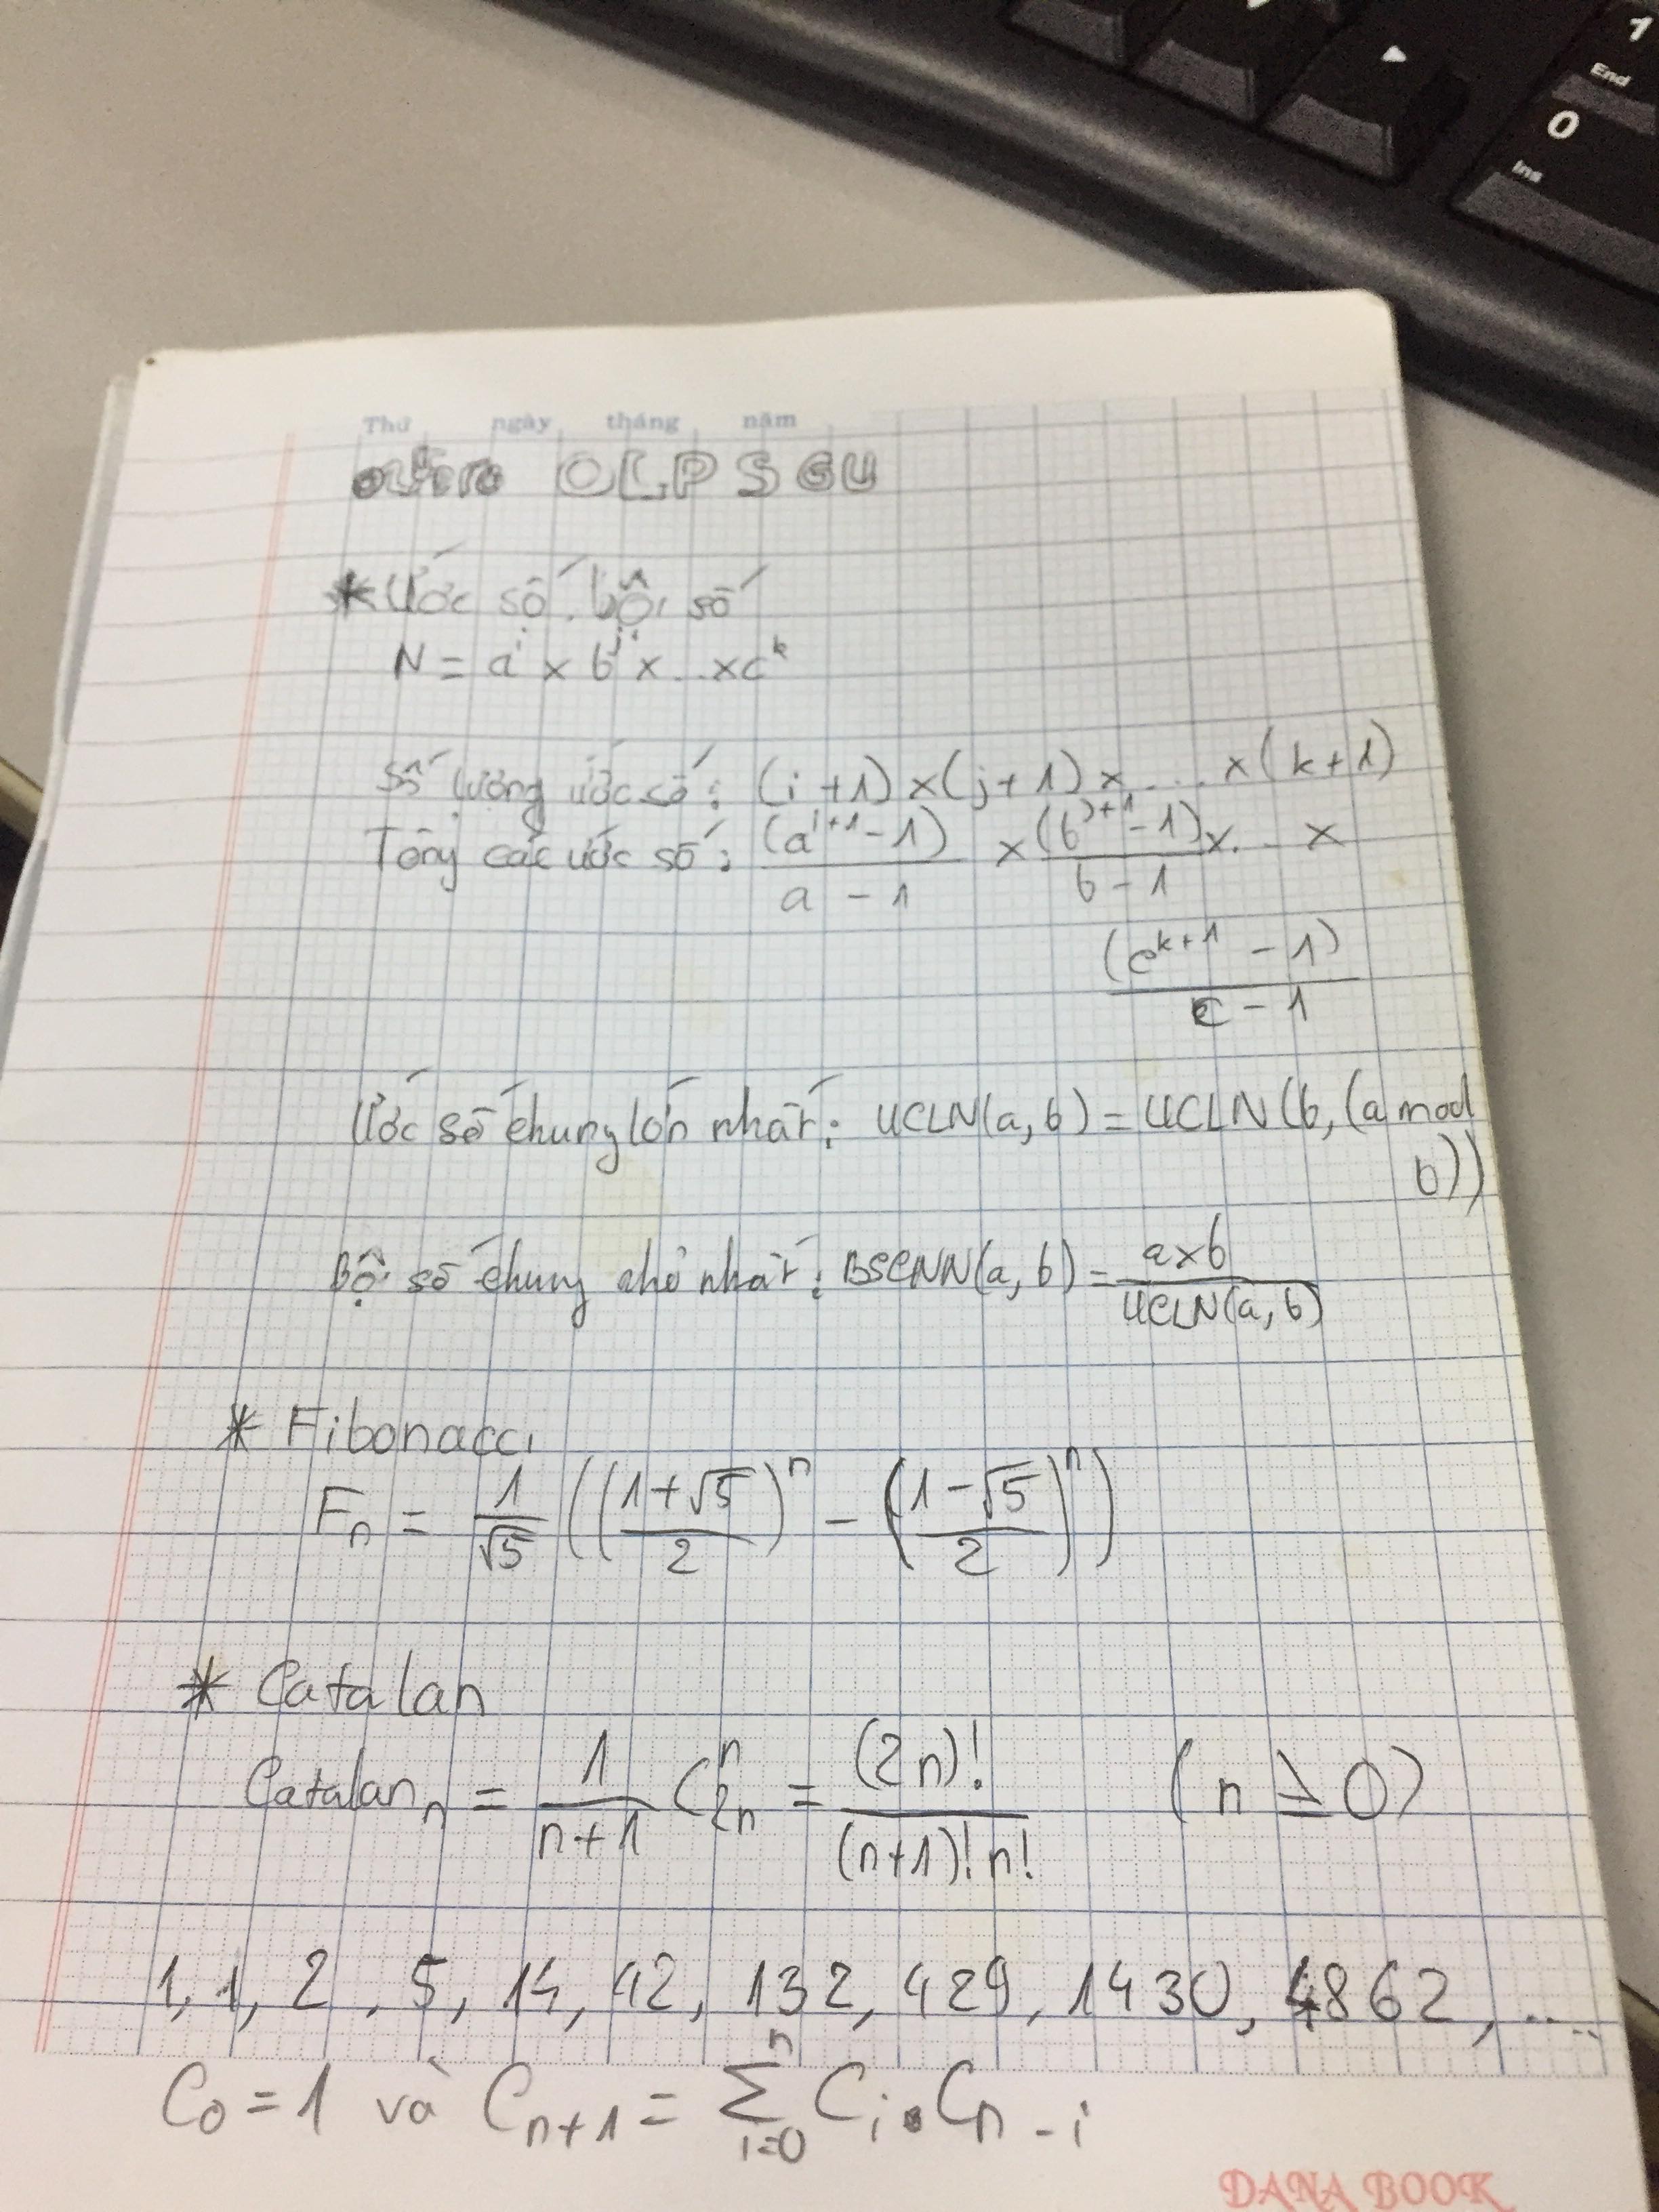 1
End
0
Ins
Thứ ngày tháng năm
OLP SGU
* Ước số, bội số
N = a^i x b^j x ... x c^k
Số lượng ước số: (i+1) x (j+1) x .... x (k+1)
Tổng các ước số: (a^(i+1) - 1) / (a - 1) x (b^(j+1) - 1) / (b - 1) x ... x
(c^(k+1) - 1) / (c - 1)
Ước số chung lớn nhất: UCLN(a, b) = UCLN(b, (a mod
b))
Bội số chung nhỏ nhất: BSCNN(a, b) = a x b / UCLN(a, b)
* Fibonacci
F_n = 1/√5 (((1+√5)/2)^n - ((1-√5)/2)^n)
* Catalan
Catalan_n = 1/(n+1) C_2n^n = (2n)! / (n+1)! n! (n ≥ 0)
1, 1, 2, 5, 14, 42, 132, 429, 1430, 4862, ....
C_0 = 1 và C_n+1 = Σ_{i=0}^{n} C_i . C_n-i
DANA BOOK